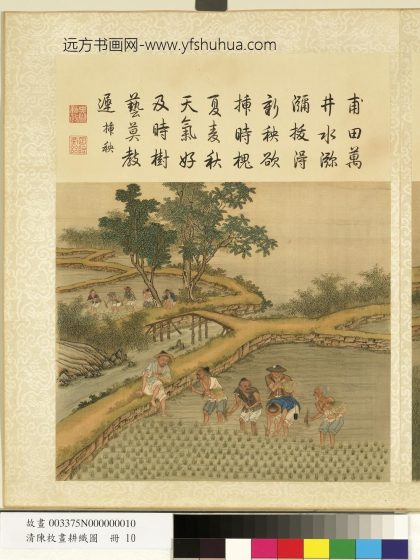 远方书画网-www.yfshuhua.com
甫田萬
井水瀰
瀰拔得
新秧欲
插時槐
夏麦秋
天氣好
及時樹
藝莫教
遲 插秧
故畫 003375N000000010
清陳枚畫耕織圖 冊 10